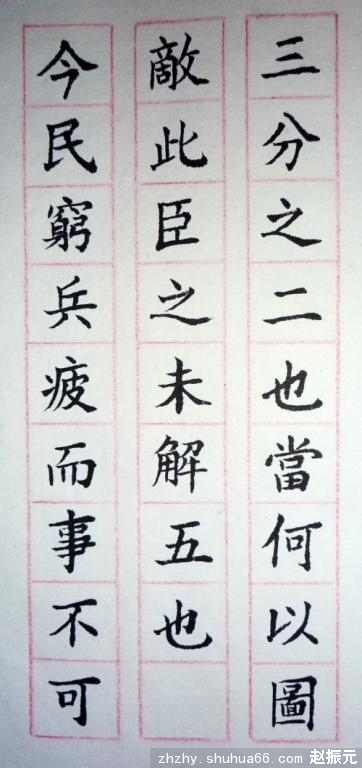 三分之二也當何以圖
敵此臣之未解五也
今民窮兵疲而事不可
zhzhy.shuhua66.com 赵振元